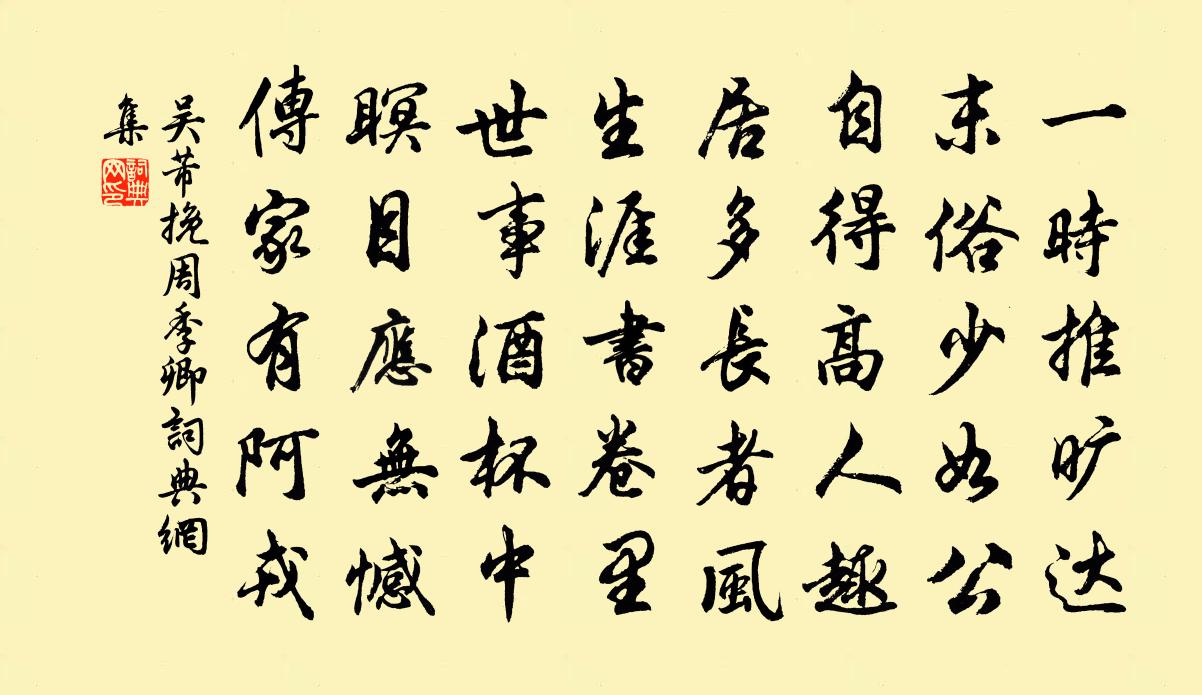 一時推旷达
末俗少如公
自得高人趣
居多長者風
生涯書卷里
世事酒杯中
瞑目應無憾
傳家有阿戎
吴芾挽周季卿詞典網
集
詞典網印